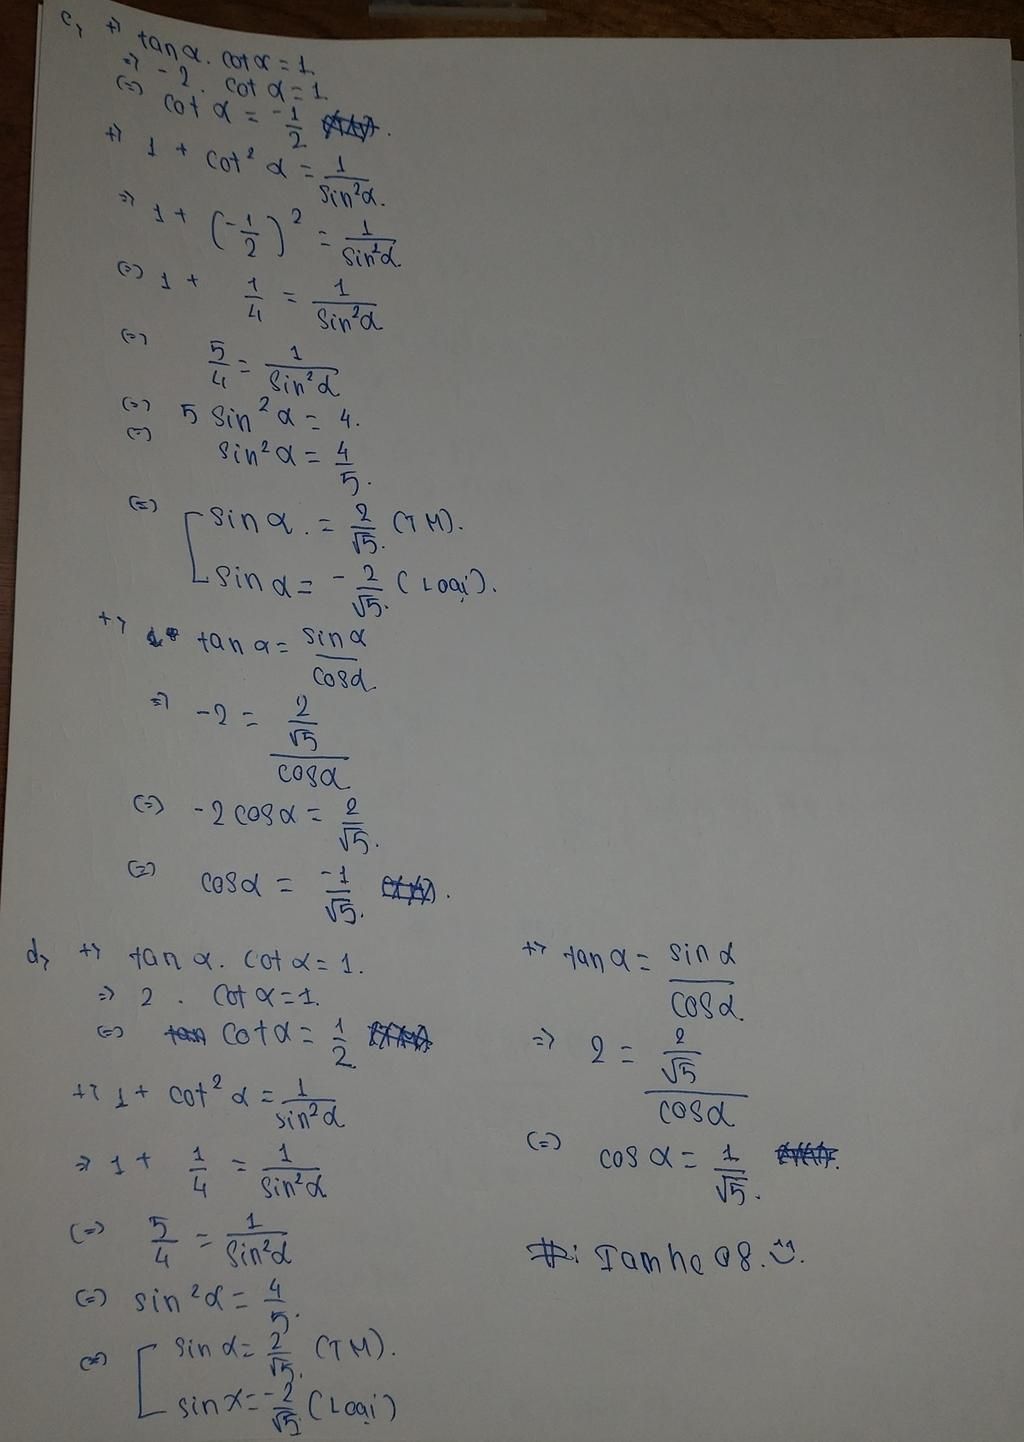 c, +, tan α. cot α = 1.
=> -2. cot α = 1
(=) cot α = -1/2.
+, 1 + cot² α = 1/sin²α.
=> 1 + (-1/2)² = 1/sin²α.
(=) 1 + 1/4 = 1/sin²α
(=) 5/4 = 1/sin²α
(=) 5 sin² α = 4.
(=) sin² α = 4/5.
(=) [ sin α. = 2/√5. (TM).
sin α = -2/√5. (Loại).
+, tan α = sin α/cos α.
=> -2 = 2/√5/cos α
(=) -2 cos α = 2/√5.
(=) cos α = -1/√5.
d, +, tan α. cot α = 1.
=> 2. cot α = 1.
(=) cot α = 1/2
+, 1 + cot² α = 1/sin²α
=> 1 + 1/4 = 1/sin²α
(=) 5/4 = 1/sin²α
(=) sin²α = 4/5.
(=) [ sin α = 2/√5. (TM).
sin x = -2/√5. (Loại)
+, tan α = sin α/cos α.
=> 2 = 2/√5/cos α
(=) cos α = 1/√5.
#: Iamhe 08.